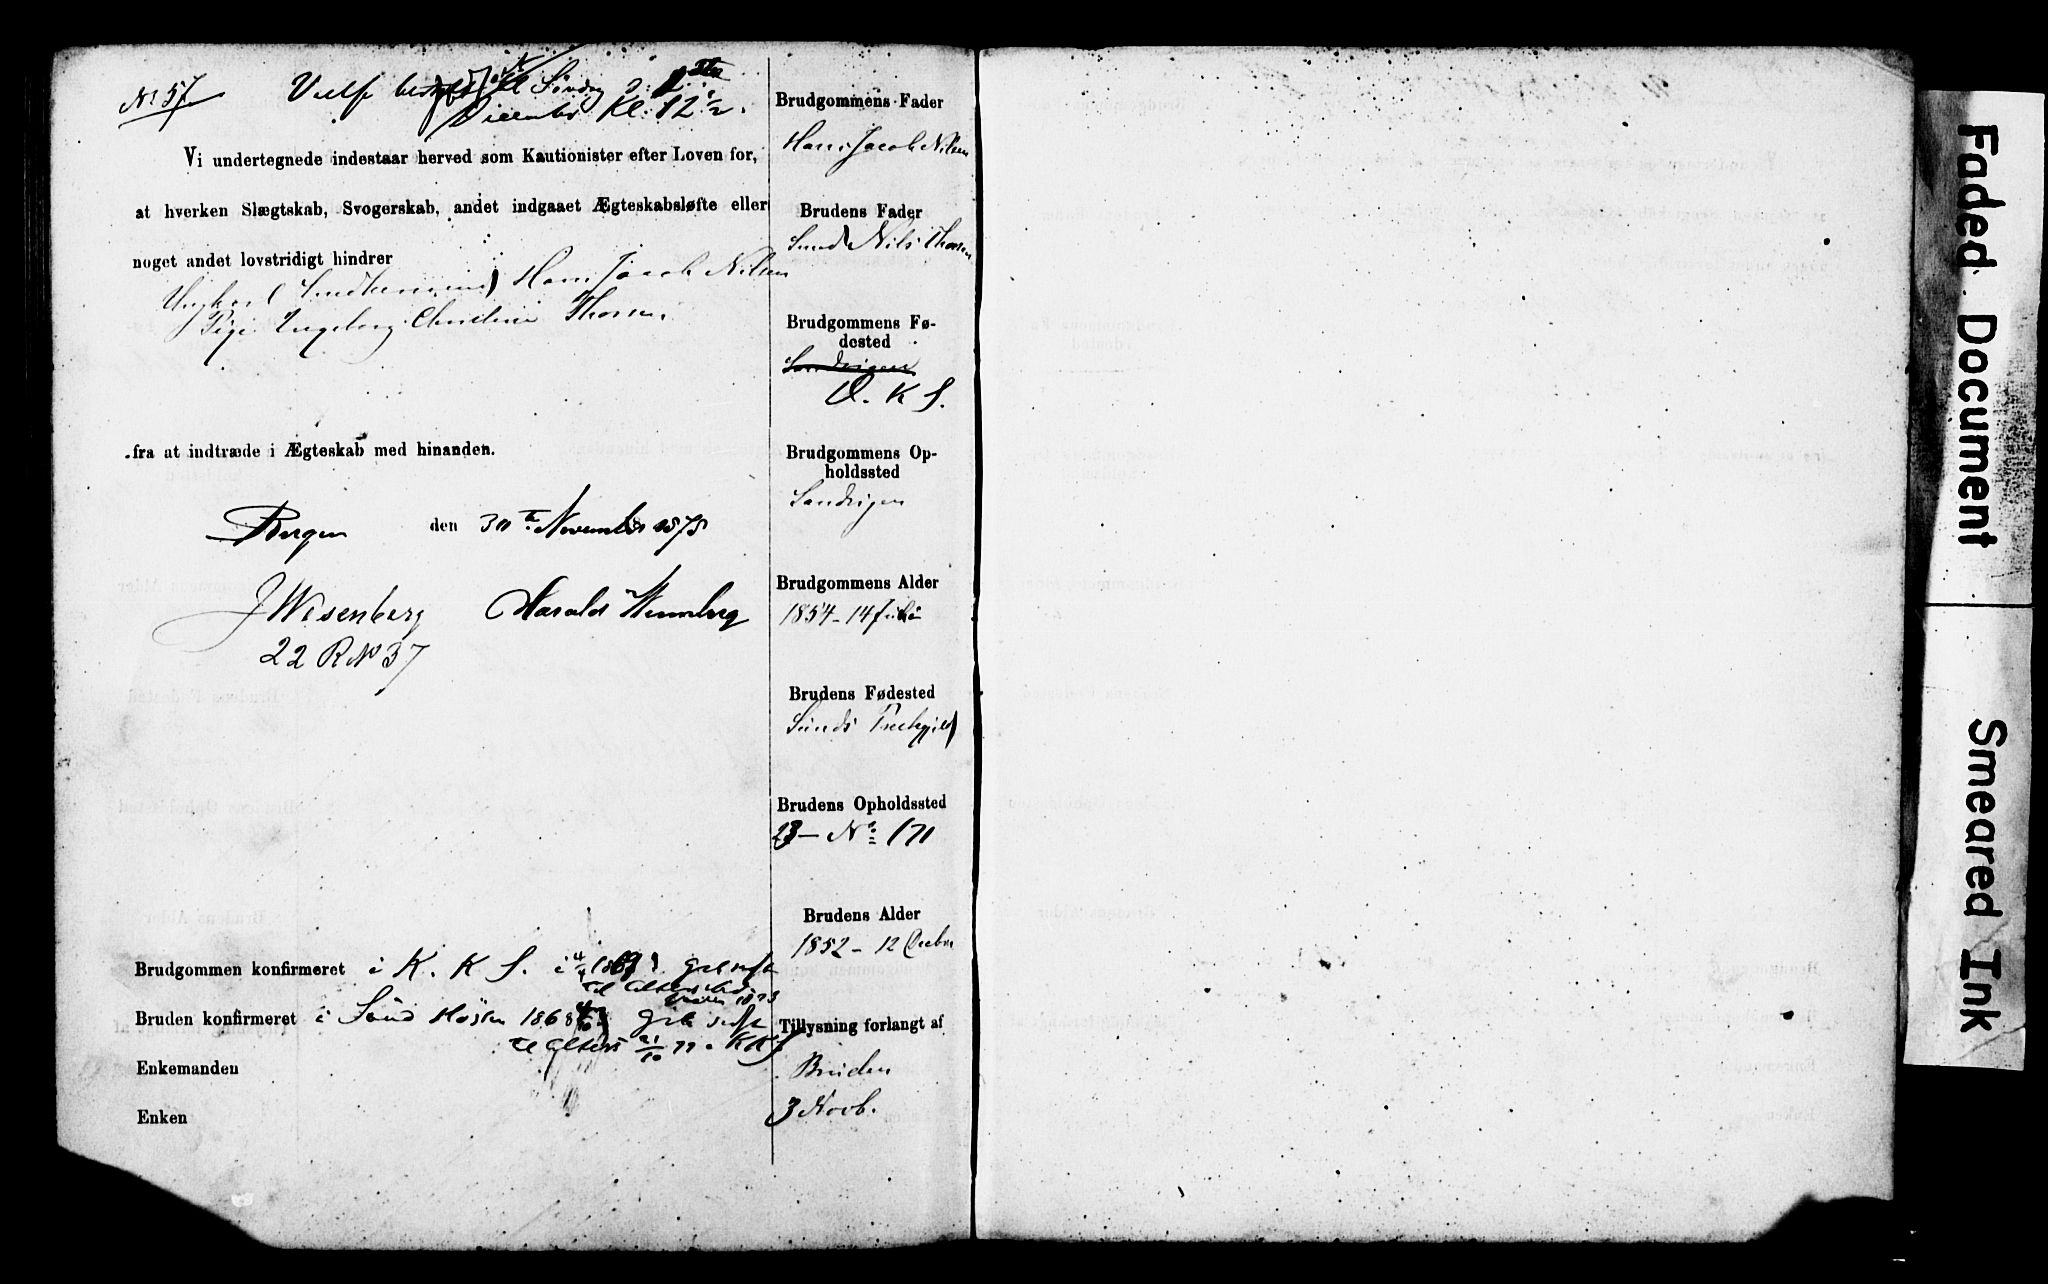 No 57
Søndag d: 2den
December Kl: 12 1/2.
Vi undertegnede indestaar herved som Kautionister efter Loven for,
at hverken Slægtskab, Svogerskab, andet indgaaet Ægteskabsløfte eller
noget andet lovstridigt hindrer
Ungkarl Hans Jacob Nilsen
Pige Ingeborg Christine Thorsen
fra at indtræde i Ægteskab med hinanden.
Bergen den 30te November 187
J Wesenberg Harald
22 R No 37
Brudgommen konfirmeret i K. K S. i
Bruden konfirmeret i Sund Høsten 1868
til Alters 21/10 77 i K K
Enkemanden
Enken
Brudgommens Fader
Hans Jacob Nilsen
Brudens Fader
Nils Thorsen
Brudgommens Fø-
dested
D. K S.
Brudgommens Op-
holdssted
Sandvigen
Brudgommens Alder
1854 - 14
Brudens Fødested
Sunds Præstegjeld
Brudens Opholdssted
23 - No 171
Brudens Alder
1852 - 12 Decbr
Tillysning forlangt af
Bruden
3 Novb.
Faded Document
Smeared Ink